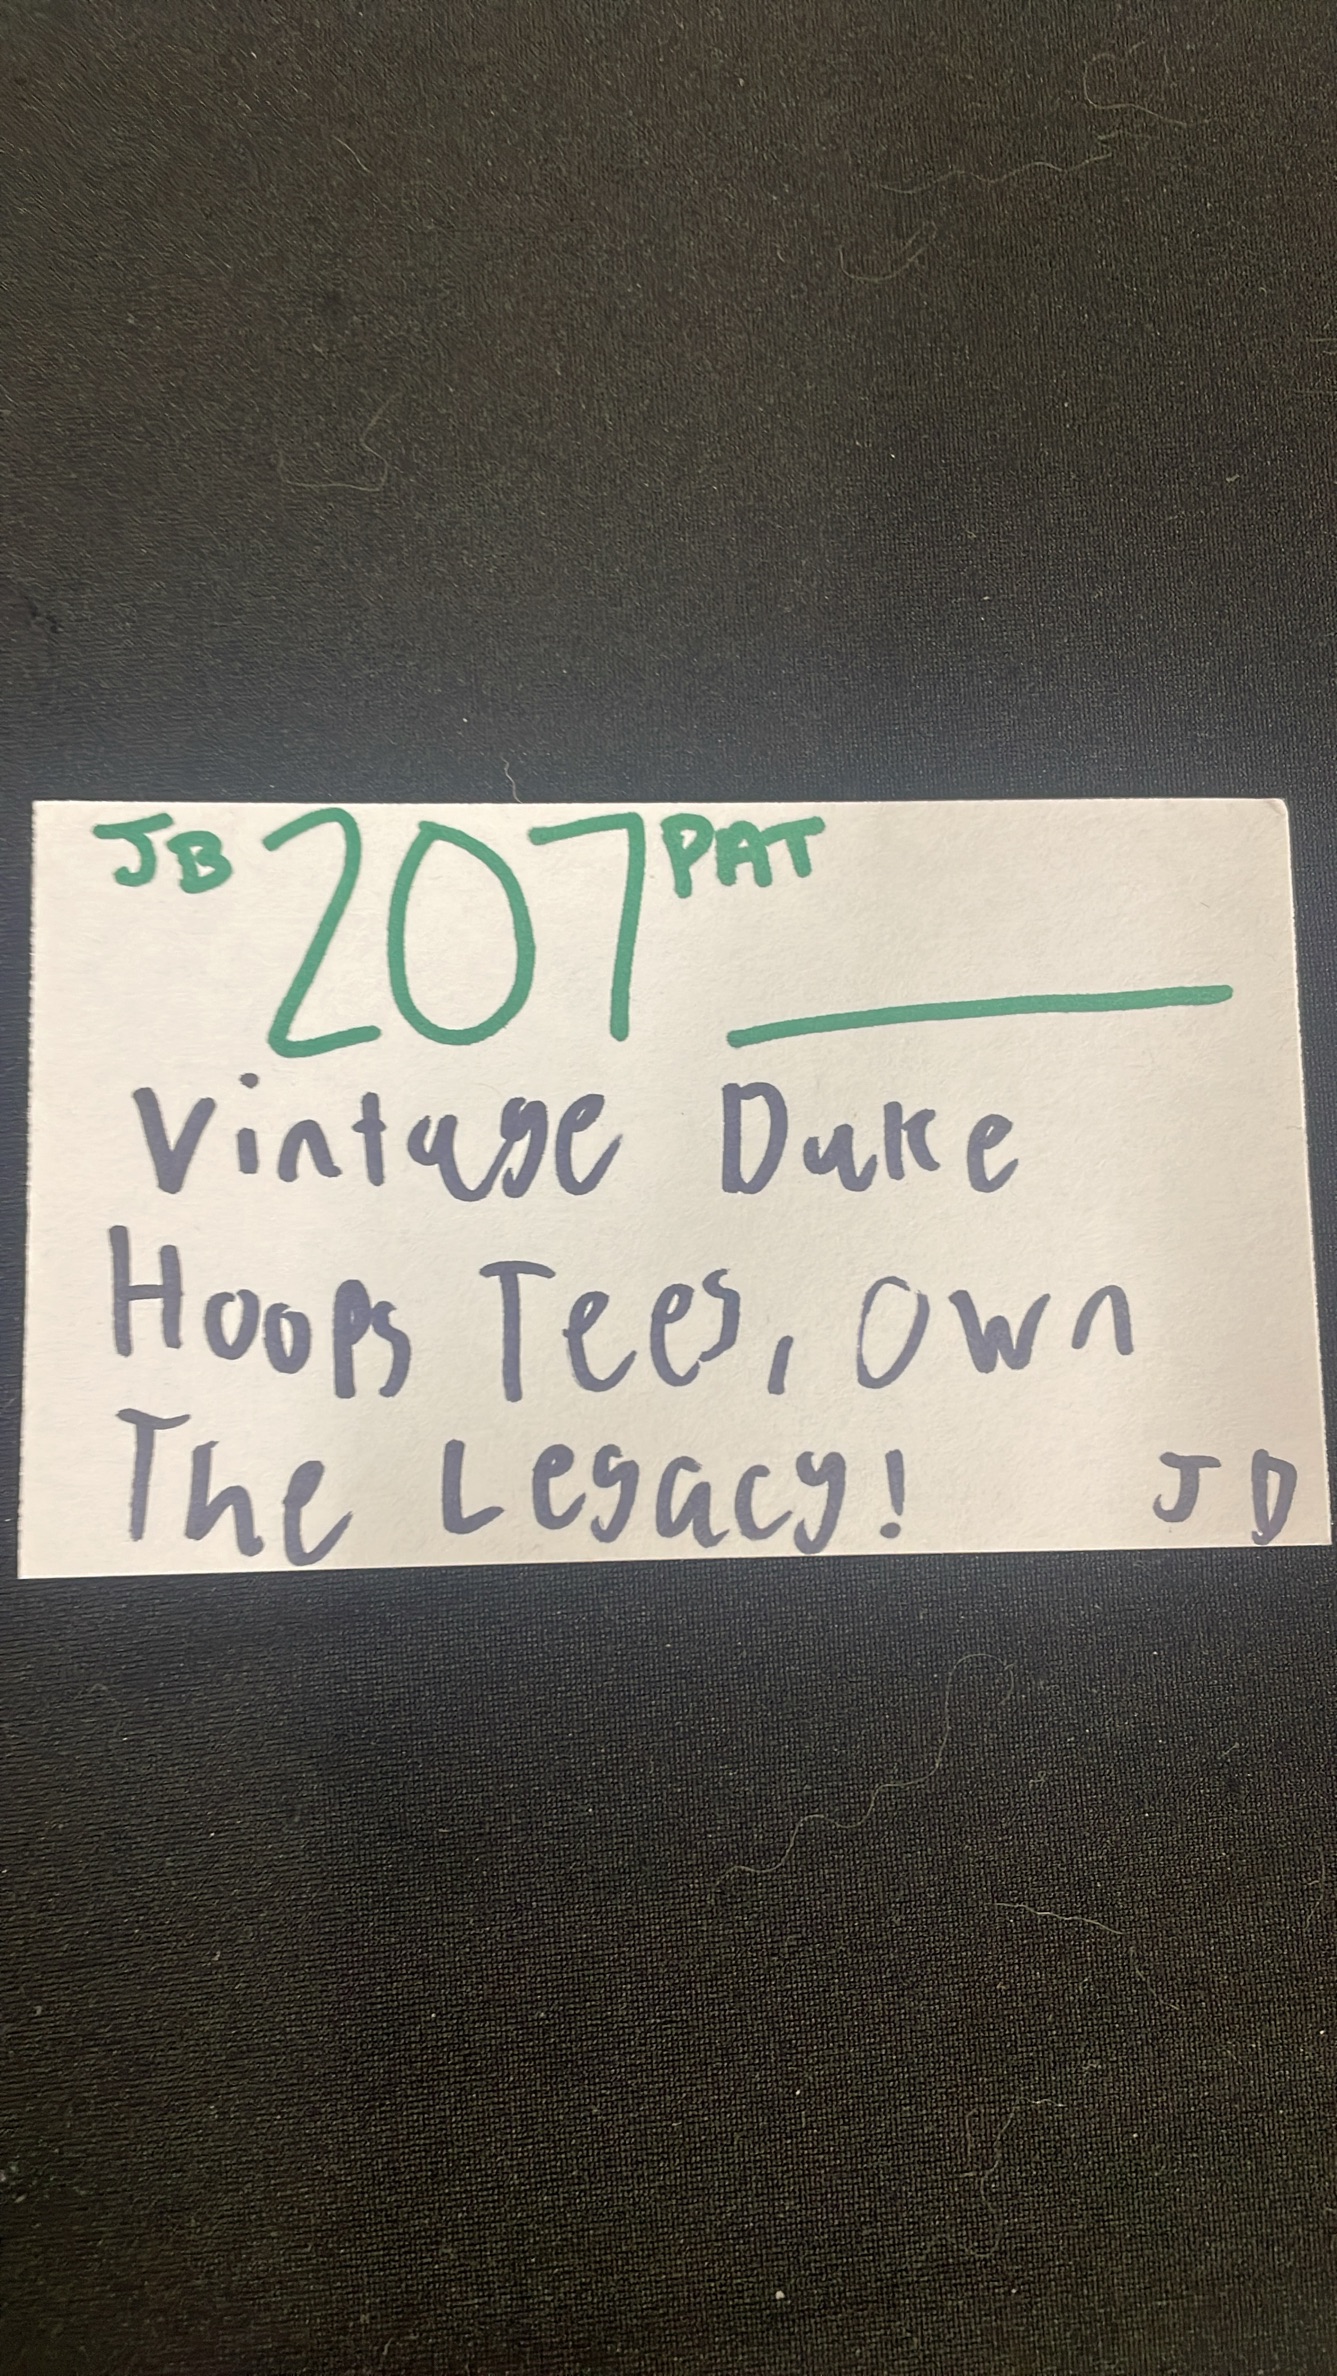 JB 207 PAT
Vintage Duke
Hoops Tees, Own
The Legacy! JD